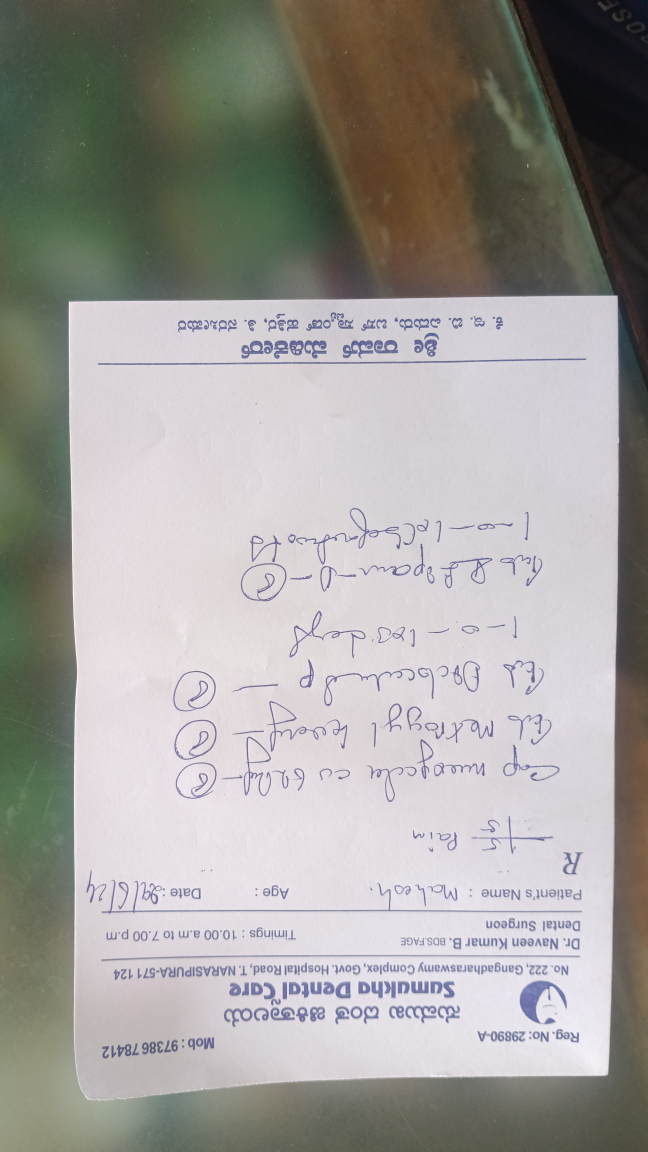 Reg. No: 29890-A
Mob : 97386 78412
ಸುಮುಖ ದಂತ ಚಿಕಿತ್ಸಾಲಯ
Sumukha Dental Care
No. 222, Gangadharaswamy Complex, Govt. Hospital Road, T. NARASIPURA-571 124
Dr. Naveen Kumar B. BDS.FAGE
Dental Surgeon
Timings : 10.00 a.m to 7.00 p.m
Patient's Name : Mahesh.
Age :
Date : 29/6/24
R
5 Pain
Cap cv 625mg - 6
Tab Metrogyl - 6
Tab P - 6
1-0-1 days
Tab pam-D - 6
1-0-1
ಶ್ರೀ ರಾಮ್ ಮೆಡಿಕಲ್ಸ್
ಕೆ. ಇ. ಬಿ. ಎದುರು, ಬಸ್ ಸ್ಟ್ಯಾಂಡ್ ಹತ್ತಿರ, ತಿ. ನರಸೀಪುರ